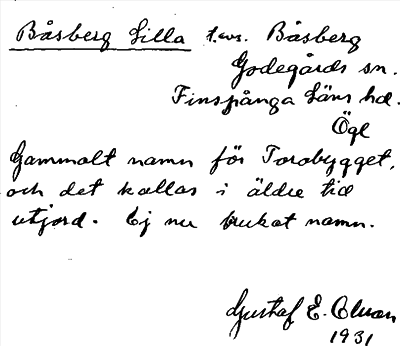 Båsberg Lilla t.ex. Båsberg
Godegårds sn.
Finspånga Läns hd.
Ögl
Gammalt namn för Torobygget,
och det kallas i äldre tid
utjord. Ej nu brukat namn.
Gustaf E. Olsson
1931